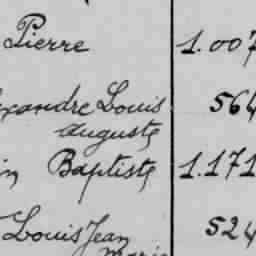 Pierre 1.007
xandre Louis 564
auguste
in Baptiste 1.171
Louis Jean 524
marie